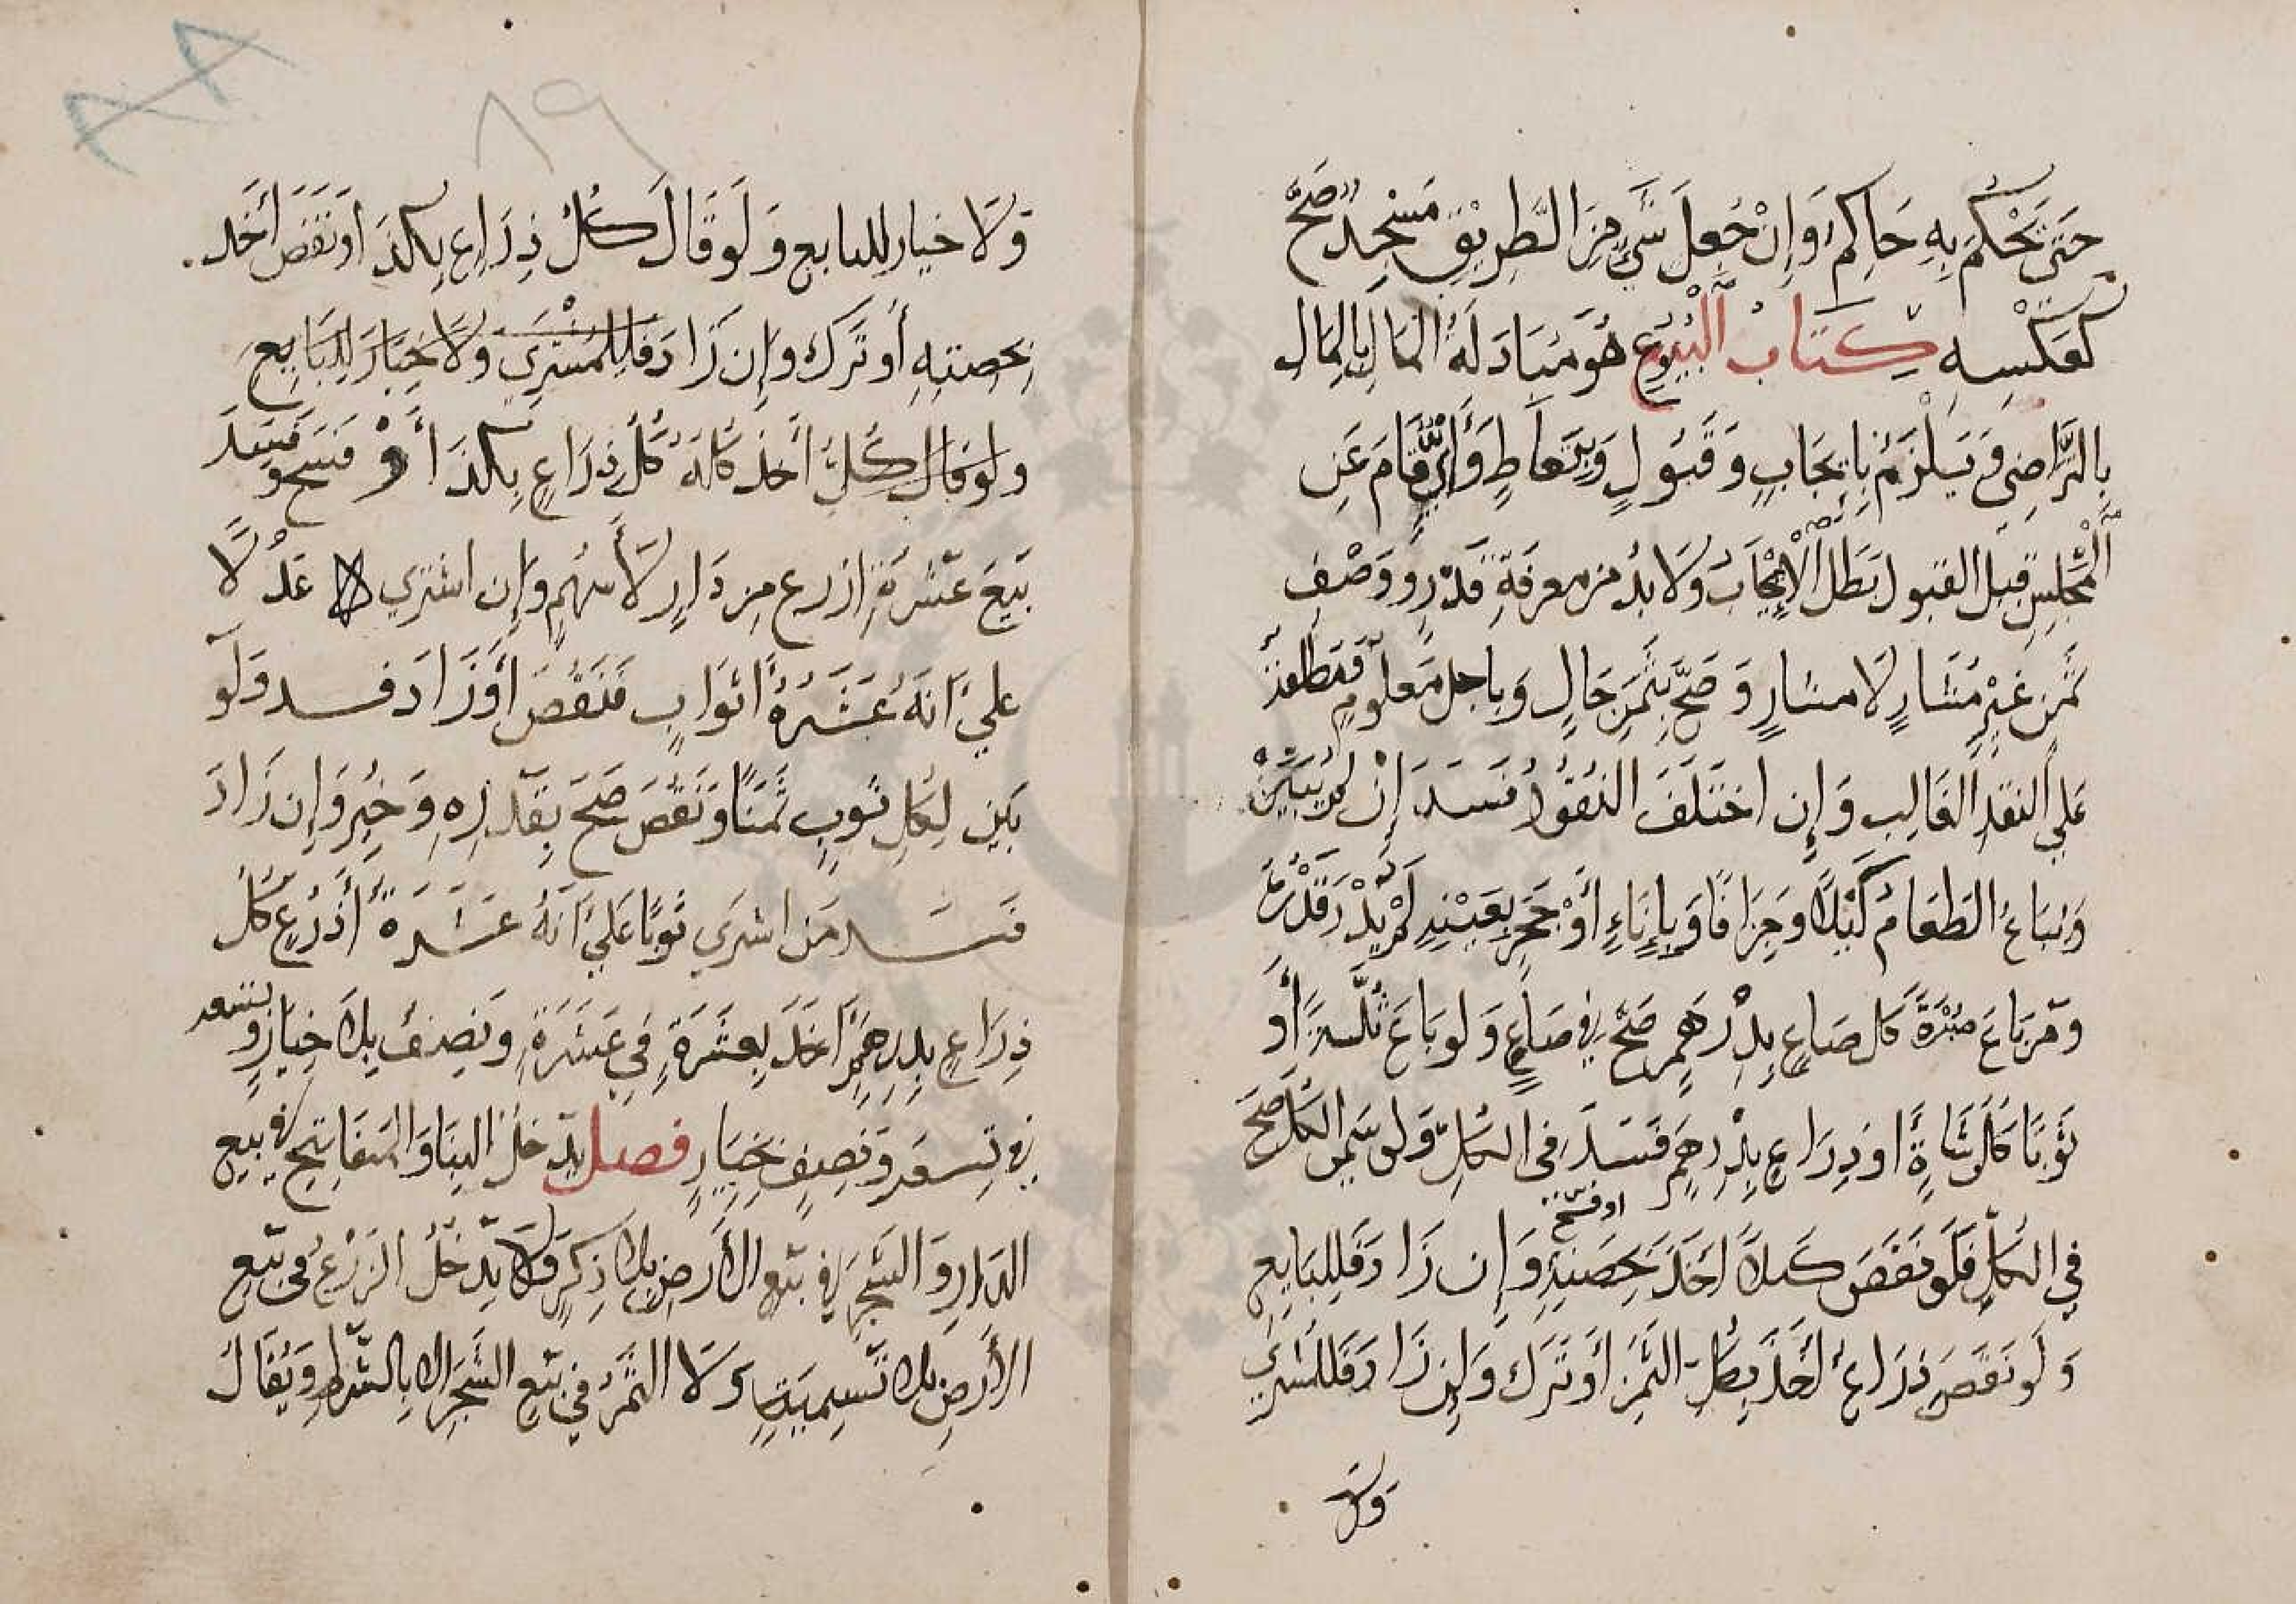 حَتَى يَحْكُمَ بِهِ حَاكِم وَإِنْ جُعِلَ شَيْءٍ مِنَ الطَّرِيْقِ مَسْجِدٌ صَحَّ
كَعَكْسِهِ كِتَابُ الْبُيُوعِ هُوَ مُبَادَلَةُ الْمَالِ بِالْمَالِ
بِالتَّرَاضِى وَيَلْزَمُ بِايجَابٍ وَقَبُولٍ وَبِتَعَاطٍ وَأَيٌّ قَامَ عَنِ
الْمَجْلِسِ قبل القبول بَطَلَ الْإِيْجَابُ وَلَا بدُ من معرفةِ قَدْرٍ وَوَصْفِ
ثَمَنٍ غيْرِ مُشَارٍ لَا مشارٍ وَصَحَّ بِثَمَنٍ حَالٍ وَباجل مَعلومٍ فمطلقهُ
عَلي النقدِ الغَالِبِ وَإِن اختَلَفَ النقُودُ فَسَدَ إِنْ لَم يُبَيَّنْ
وَيُبَاعُ الطَعَامُ كَيْلًا وجِزَافًا وَبِإِنَاءٍ أَوْ حَجَرٍ بِعَيْنِهِ لَمْ يُدْرَ قَدْرُهُ
وَمَن بَاعَ صُبْرَةً كل صاعٍ بِدِرْهَمٍ صَحَّ في صَاعٍ وَلو بَاعَ ثُلَّةً أَو
ثَوْبًا كل شَاةٍ او ذِرَاعٍ بِدِرهَمٍ فَسَدَ فى الكُلِّ وَلو سَمي الكُل صَحَ
فِي الكُلِّ فَلَو نَقَصَ كَيلًا اخَذَ بِحِصَتِهِ او فسخ وَإِن زَادَ فَلِلبَايِعِ
وَلَو نَقَصَ ذِرَاعٌ أَخَذَ بِكُلِّ الثَمَنِ أَو تَرَك وَإِن زَادَ فَلِلمُشتري
وَلَا
٨٩
وَلَا خيار للبايع وَلَو قَالَ كُلُ ذِرَاعٍ بِكذَا وَنَقَصَ أَخَذ
بِحِصتِهِ أَو تَرَك وإِن زَادَ فَلِلمُشْتَرِي وَلَا خِيَارَ لِلبَايِعِ
ولو قال كُلُ أَخذ كلهُ كُل ذِرَاعٍ بِكذَا أَوْ فسخ وَفَسَدَ
بَيعَ عَشرَةِ اذرع مِن دَارٍ لَا أَسْهُمٍ وإِن اشتري عَدْلًا
عَلي أَنهُ عَشَرَةُ أَثوَابٍ فَنَقُصَ أَوْ زَادَ فسد وَلَو
بَيَن لِكُلِ ثَوبٍ ثَمَنًا وَنَقُصَ صَحَ بِقَدْرِهِ وَخُيِّرَ وَإِن زَادَ
فَسَد مَن اشتري ثَوبًا عَلي أَنهُ عَشَرَةً أَذرُعٍ كُل
ذِرَاعٍ بِدِرهَمٍ اخَذَ بِعَشَرَةٍ فِي عَشَرَةٍ وَنِصفُ بِلَا خِيَارٍ وَبتسعة
في تِسعَةٍ وَنِصفٍ بِخِيَارٍ فصل يَدخُلُ البِنَا وَالمَفَاتِيح فى بيعِ
الدَارِ وَالشَجَر في بَيعِ الأَرضِ بِلَا ذِكرٍ وَلَا يَدخُلُ الزَرْعُ فى بَيعِ
الأَرضِ بِلَا تَسمِيَةٍ وَلَا الثَمَرُ في بَيعِ الشَجَرِ إِلا بِالشَرطِ وَيُقَالُ